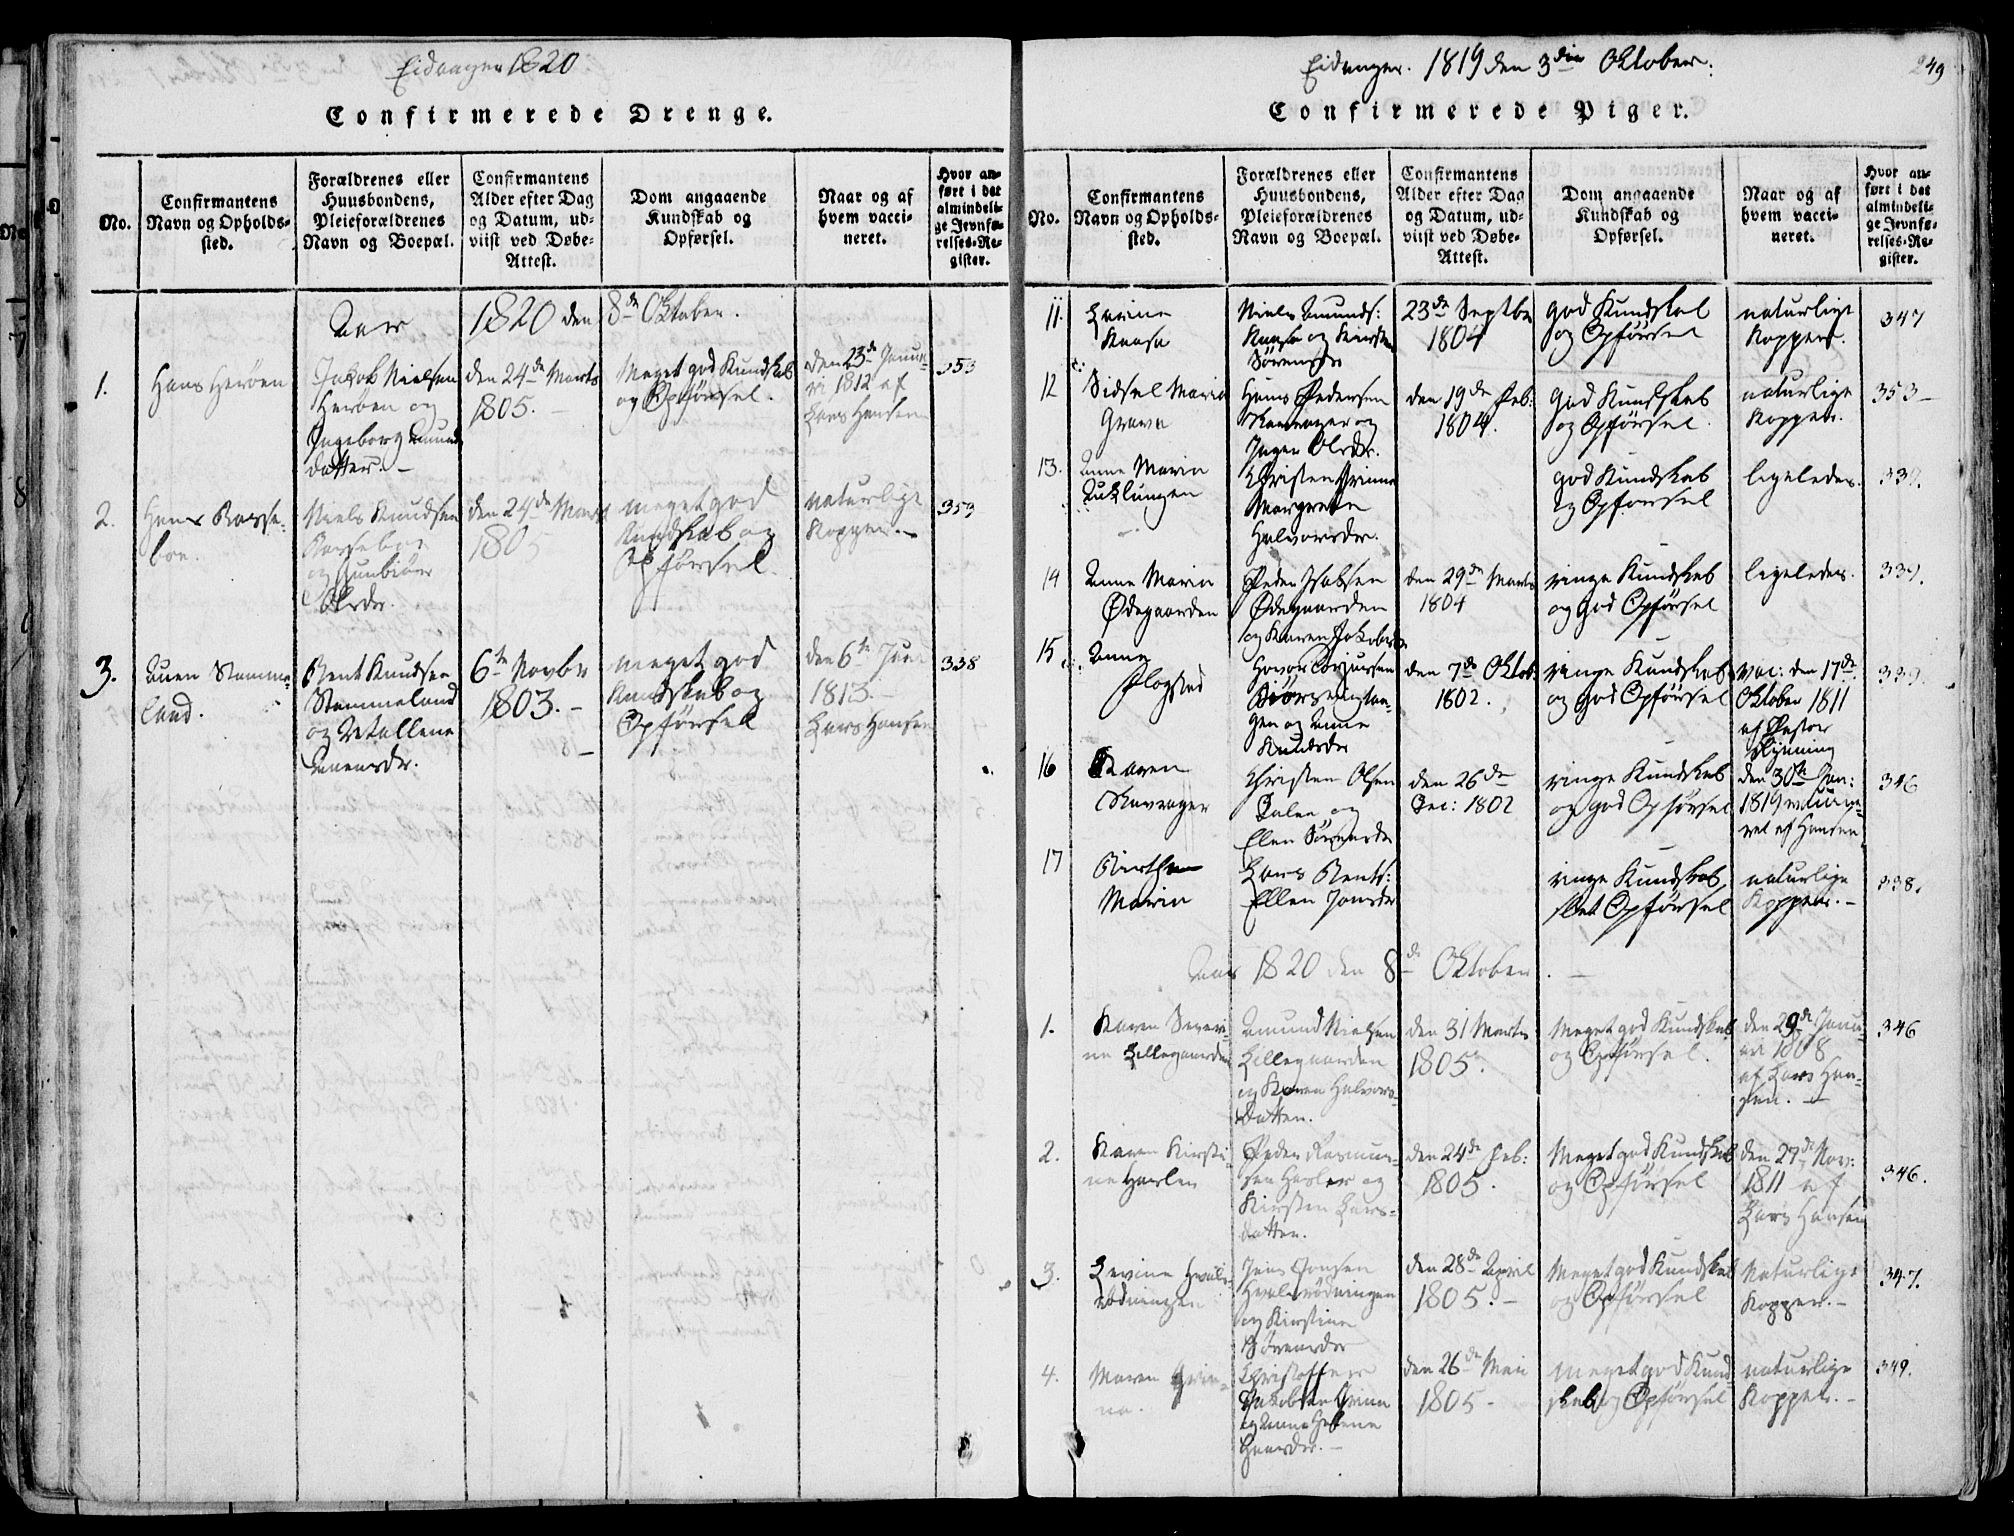 Eidanger 1820
Confirmerede Drenge.
No.
Confirmantens
Navn og Opholds-
sted.
Forældrenes eller
Huusbondens,
Pleieforældrenes
Navn og Boepæl.
Confirmantens
Alder efter Dag
og Datum, ud-
viist ved Døbe-
Attest.
Dom angaaende
Kundskab og
Opførsel.
Naar og af
hvem vacci-
neret.
Hvor an-
ført i det
almindeli-
ge Jevnfø-
relses-Re-
gister.
Aar 1820 den 8de Oktober.
1.
Hans Herøen
Jakob Nielsen
Herøen og
Ingeborg Amunds
datter. -
den 24de Marts
1805. -
Meget god Kundskab
og Opførsel.
den 23de Janua-
ri 1812 af
Lars Hansen
353
2.
Hans
boe.
Niels Knudsen
og Gunbiør
Olsdr.
den 24de Marts
1805
meget god
Kundskab og
Opførsel.
naturlige
Kopper. -
359
3.
Auen Stamme-
land.
Bent Knudsen
Stammeland
og
Auensdr.
6te Novbr
1803. -
meget god
Kundskab og
Opførsel
den 6te Juni
1813. -
Lars Hansen
338
Eidanger. 1819 den 3die Oktober.
249
Confirmerede Piger.
No.
Confirmantens
Navn og Opholds-
sted.
Forældrenes eller
Huusbondens,
Pleieforældrenes
Navn og Boepæl.
Confirmantens
Alder efter Dag
og Datum, ud-
viist ved Døbe-
Attest.
Dom angaaende
Kundskab og
Opførsel.
Naar og af
hvem vacci-
neret.
Hvor an-
ført i det
almindeli-
ge Jevnfø-
relses-Re-
gister.
11.
Levine
Kaasa
Niels Amunds:
Kaasa og Kirsten
Sørensdr
23de Septbr
1804
god Kundskab
og Opførsel
naturlige
Kopper.
347
12
Sidsel Maria
Grava
Hans Pedersen
Skavrager og
Inger Olsdr.
den 19de Feb:
1804.
God Kundskab
og Opførsel.
naturlige
Kopper.
353 -
13.
Anne Maria
Auklungen
Christen Grinna
Margrethe
Halvorsdr.
god Kundskab
og Opførsel
ligeledes.
339.
14
Anne Maria
Ødegaarden
Peder Isaksen
Ødegaarden
og Karen Jakobsdr
den 29de Marts
1804
ringe Kundskab
og god Opførsel
ligeledes.
339.
15
Anne
Flogstad
og Anne
Knudsdr
den 7de Oktob:
1802.
ringe Kundskab
og god Opførsel
vac: den 17de
Oktober 1811
af Pastor
Flynning
339.
16
Karen
Skavrager
Christen Olsen
Dalen og
Ellen Sørensdr
den 26de
Dec: 1802
ringe Kundskab
og god Opførsel
den 30te Jan:
1819 vaccine-
ret af Hansen
346
17
Birthe
Maria
Lars Bents:
Ellen Jansdr
ringe Kundskab,
slet Opførsel
naturlige
Kopper. -
338.
Aar 1820 den 8de Oktober. -
1.
Karen Severi-
ne Lillegaarden
Amund Nielsen
Lillegaarden
og Karen Halvors-
datter.
den 31 Marts
1805.
Meget god Kundskab
og Opførsel.
den 29de Janu-
ari 1808
af Lars Han-
sen. -
346
2.
Karen Kirsti-
ne Haslen
Peder Rasmus-
sen Haslen og
Kirsten Lars-
datter.
den 24de Feb:
1805.
Meget god Kundskab
og Opførsel
den 27de Nov:
1811 af
Lars Hansen
346.
3.
Levine Hvals-
rødningen
Jens Jonsen
Hvalsrødningen
og Kirstine
Sørensdr
den 28de April
1805. -
Meget god Kundskab
og Opførsel
Naturlige
Kopper. -
347.
4.
Maren Grin-
na.
Christoffer
Jakobsen Grinna
og Anne Helene
den 26de Mai
1805 -
meget god Kund-
skab og Opførsel
naturlige
Kopper. -
349.